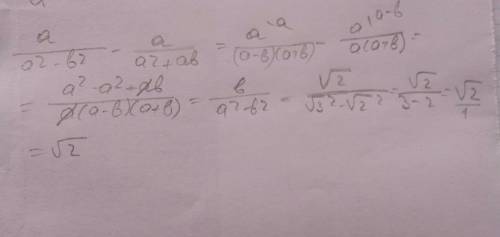 a/(a² - b²) - a/(a² + ab) = a^\a/((a-b)(a+b)) - a^\a-b/(a(a+b)) =
= (a² - a² + ab)/(a(a-b)(a+b)) = b/(a² - b²) = √2/(√3² - √2²) = √2/(3-2) = √2/1
= √2